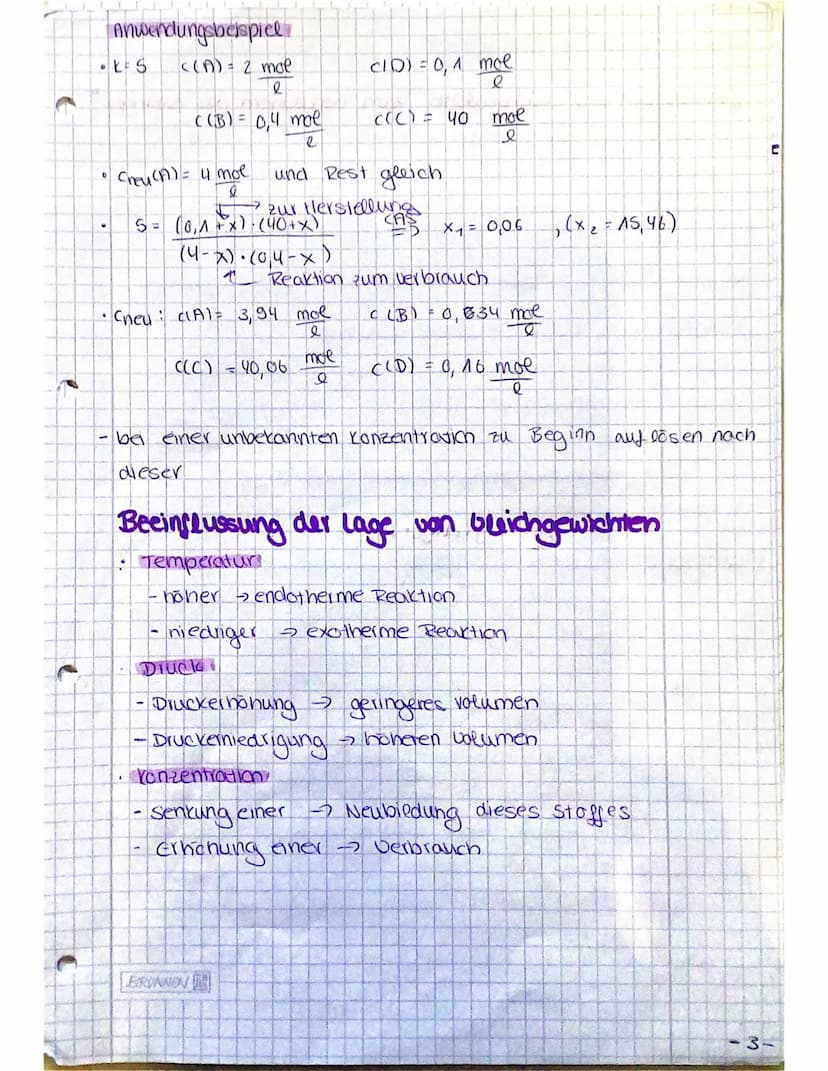 Anwendungsbeispiel
• K=5 c(A) = 2 mol/l c(D) = 0,1 mol/l
c(B) = 0,4 mol/l c(C) = 40 mol/l
• Cneu(A) = 4 mol/l und Rest gleich
→ zur Herstellung
• 5 = (0,1+x)·(40+x) / (4-x)·(0,4-x) CAS => x₁ = 0,06 , (x₂ = 15,46)
Reaktion zum verbrauch
• Cneu: c(A) = 3,94 mol/l c(B) = 0,334 mol/l
c(C) = 40,06 mol/l c(D) = 0,16 mol/l
- bei einer unbekannten Konzentration zu Beginn auflösen nach
dieser
Beeinflussung der Lage von Gleichgewichten
: Temperatur
- höher → endotherme Reaktion
- niedriger → exotherme Reaktion
· Druck
- Druckerhöhung → geringeres Volumen
- Druckerniedrigung → höheren Volumen
· Konzentration
- Senkung einer → Neubildung dieses Stoffes
- Erhöhung einer → Verbrauch
BRUNNEN
- 3 -